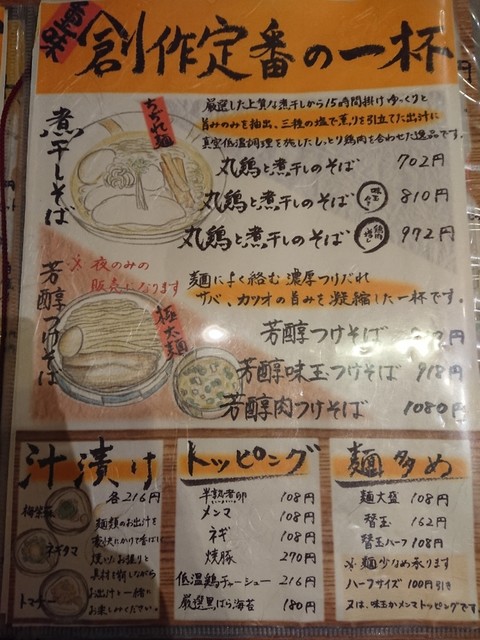 創作定番の一杯
煮干しそば
ちぢれ麺
厳選した上質な煮干しから15時間掛けゆっくりと
旨みのみを抽出。三種の塩で薫りを引立てた出汁に
真空低温調理を施したしっとり鶏肉を合わせた逸品です。
丸鶏と煮干しのそば 702円
丸鶏と煮干しのそば 味玉 810円
丸鶏と煮干しのそば 972円
芳醇つけそば
※夜のみの
販売になります
極太麺
麺によく絡む濃厚つけだれ
サバ、カツオの旨みを凝縮した一杯です。
芳醇つけそば 円
芳醇味玉つけそば 918円
芳醇肉つけそば 1080円
汁漬け
各216円
ネギタマ
トマト
麺類のお出汁を
焼いたお握りと
お出汁と一緒に
お楽しみください。
トッピング
半熟煮卵 108円
メンマ 108円
ネギ 108円
焼豚 270円
低温鶏チャーシュー 216円
厳選黒ばら海苔 180円
麺多め
麺大盛 108円
替玉 162円
替玉ハーフ 108円
※麺少なめ承ります
ハーフサイズ 100円引き
又は、味玉かメンマトッピングです。